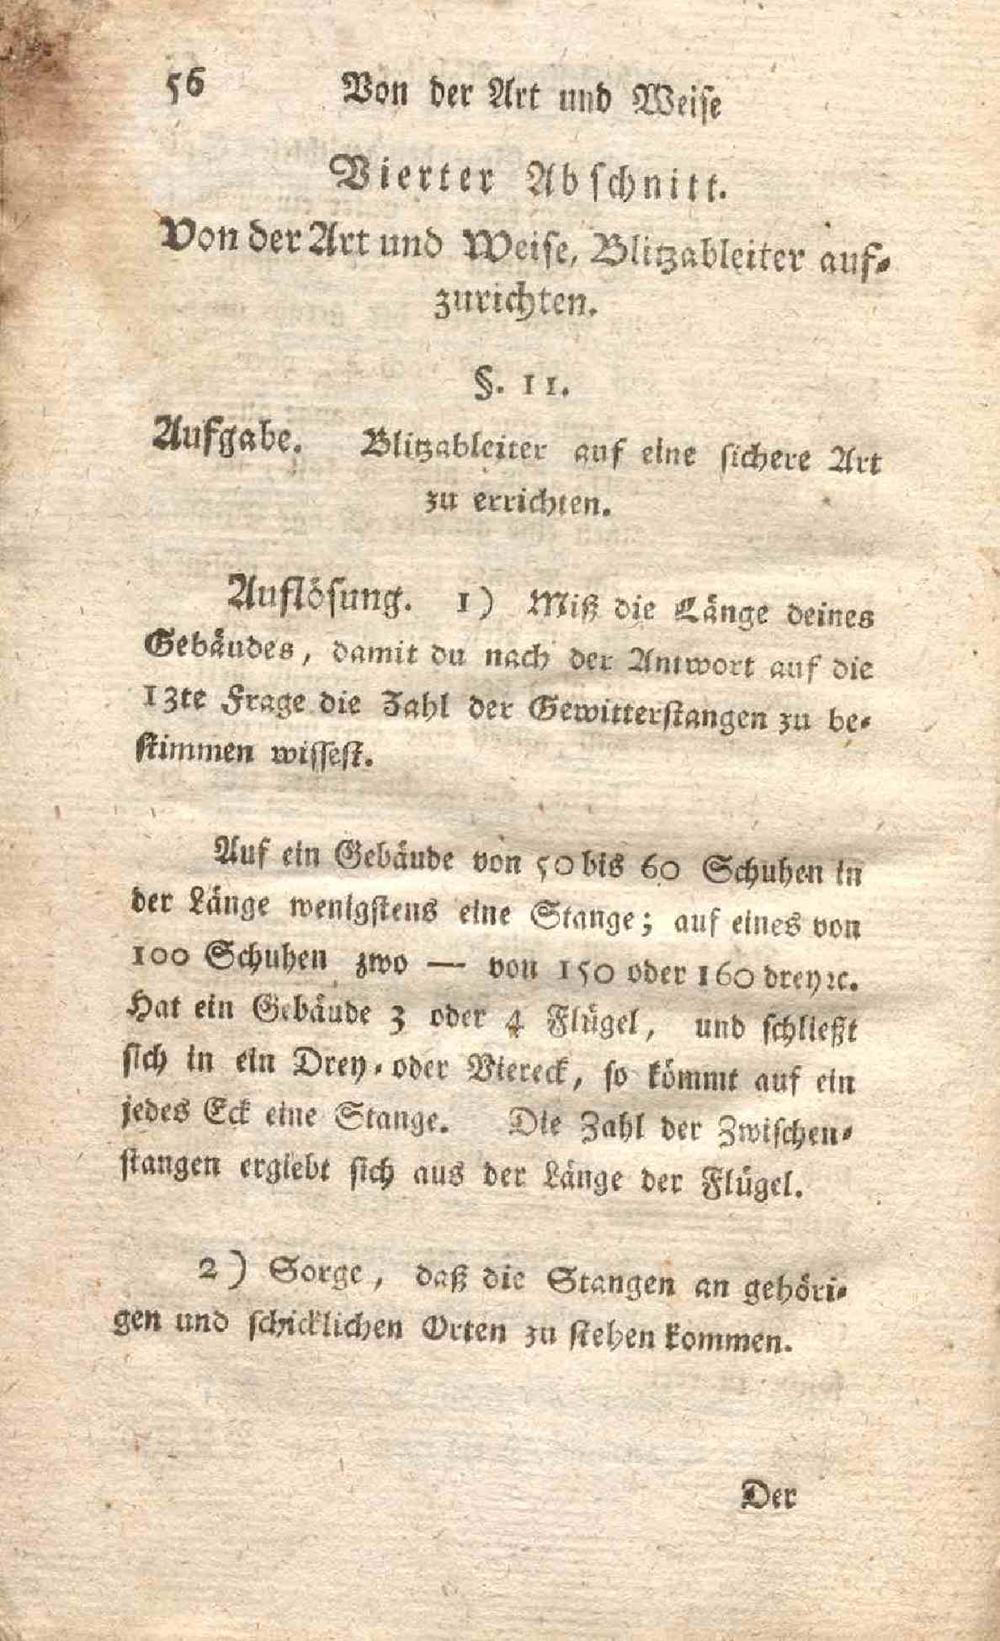 56 Von der Art und Weise
Vierter Abschnitt.
Von der Art und Weise, Blitzableiter auf-
zurichten.
§. 11.
Aufgabe. Blitzableiter auf eine sichere Art
zu errichten.
Auflösung. 1) Miß die Länge deines
Gebäudes, damit du nach der Antwort auf die
13te Frage die Zahl der Gewitterstangen zu be-
stimmen wissest.
Auf ein Gebäude von 50 bis 60 Schuhen in
der Länge wenigstens eine Stange; auf eines von
100 Schuhen zwo — von 150 oder 160 drey ꝛc.
Hat ein Gebäude 3 oder 4 Flügel, und schließt
sich in ein Drey- oder Viereck, so kömmt auf ein
jedes Eck eine Stange. Die Zahl der Zwischen-
stangen ergiebt sich aus der Länge der Flügel.
2) Sorge, daß die Stangen an gehöri-
gen und schicklichen Orten zu stehen kommen.
Der